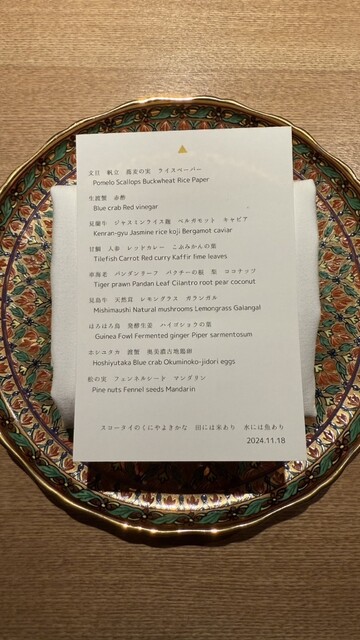 文旦　帆立　蕎麦の実　ライスペーパー
Pomelo Scallops Buckwheat Rice Paper
生渡蟹　赤酢
Blue crab Red vinegar
見蘭牛　ジャスミンライス麹　ベルガモット　キャビア
Kenran-gyu Jasmine rice koji Bergamot caviar
甘鯛　人参　レッドカレー　こぶみかんの葉
Tilefish Carrot Red curry Kaffir lime leaves
車海老　パンダンリーフ　パクチーの根　梨　ココナッツ
Tiger prawn Pandan Leaf Cilantro root pear coconut
見島牛　天然茸　レモングラス　ガランガル
Mishimaushi Natural mushrooms Lemongrass Galangal
ほろほろ鳥　発酵生姜　ハイゴショウの葉
Guinea Fowl Fermented ginger Piper sarmentosum
ホシユタカ　渡蟹　奥美濃古地鶏卵
Hoshiyutaka Blue crab Okuminoko-jidori eggs
松の実　フェンネルシード　マンダリン
Pine nuts Fennel seeds Mandarin
スコータイのくにやよきかな　田には米あり　水には魚あり
2024.11.18